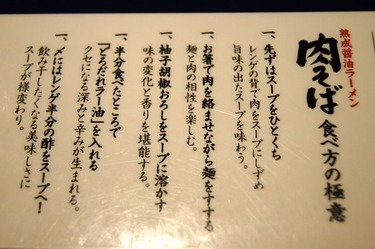 熟成醤油ラーメン
肉そば 食べ方の極意
一、先ずはスープをひとくち
レンゲの背で肉をスープにしずめ
旨味の出たスープを味わう。
一、お箸で肉を絡ませながら麺をすする
麺と肉の相性を楽しむ。
一、柚子胡椒おろしをスープに溶かす
味の変化と香りを堪能する。
一、半分食べたところで
「どろだれラー油」を入れる
クセになる深みと辛みが生まれる。
一、〆にはレンゲ半分の酢をスープへ!
飲み干したくなる美味しさに
スープが様変わり。